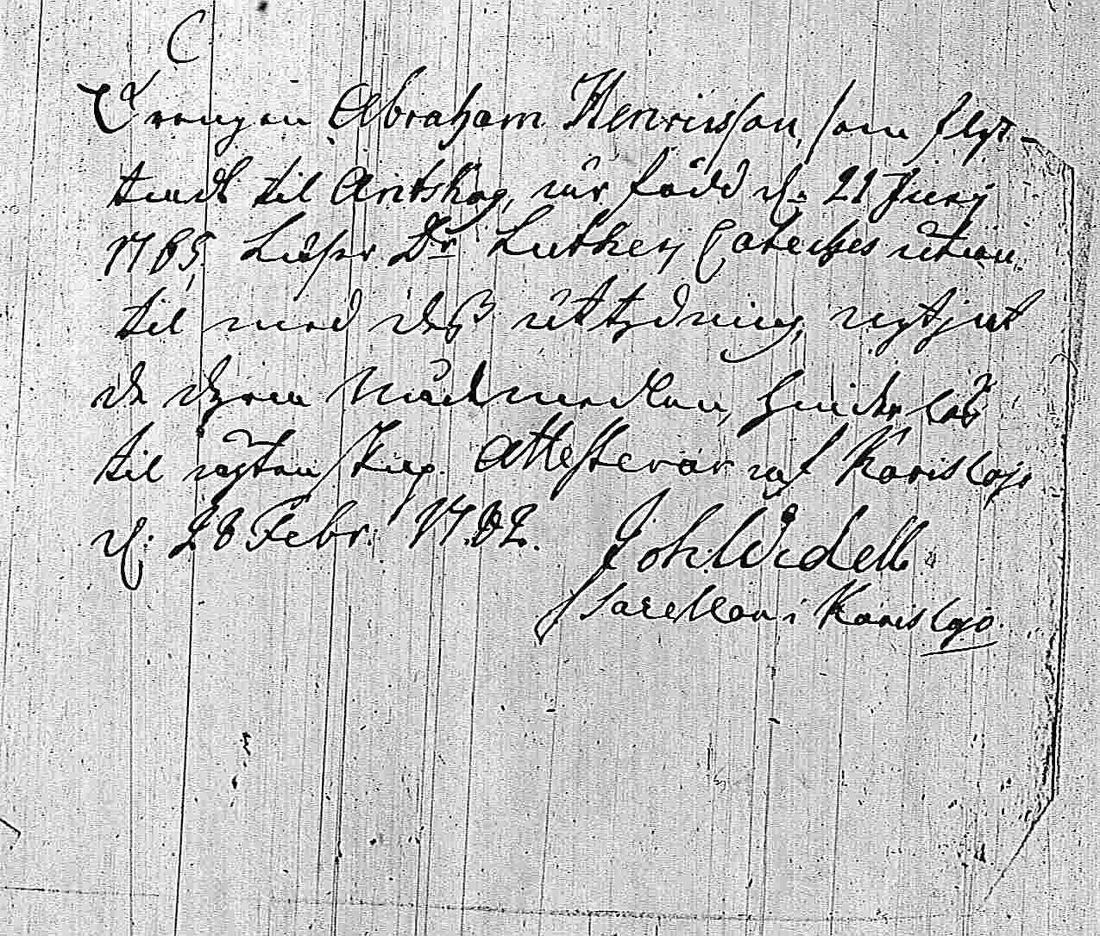 C
Drengen Abraham Henricsson, som flyt-
tade til Antskog, är född d. 21 Junij
1765, Läser D:r Lutheri Cateches utan
til med dess uttydning, nytjat
de dyra Nådemedlen, hinderlös
til ägtenskap. Attesterar af Karislojo
d. 28 Febr. 1782. Joh. Widell
Sacellan i Karislojo